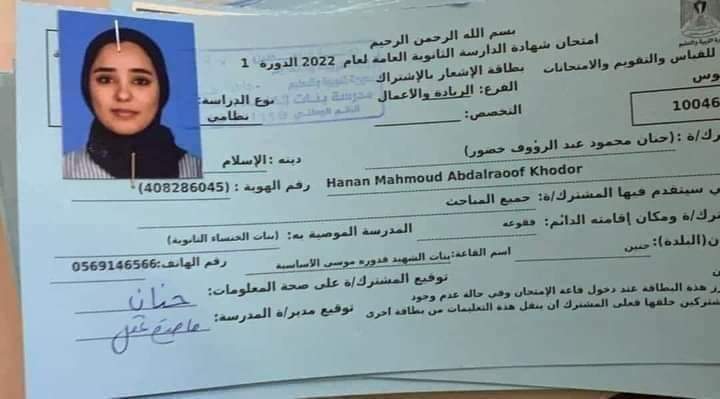 بسم الله الرحمن الرحيم
امتحان شهادة الدارسة الثانوية العامة لعام 2022 الدورة 1
للقياس والتقويم والامتحانات
بطاقة الإشعار بالإشتراك
الفرع: الريادة والأعمال
نوع الدراسة:
نظامي
التخصص:
10046
رك/ة : (حنان محمود عبد الرؤوف خضور)
دينه :الإسلام
Hanan Mahmoud Abdalraoof Khodor
رقم الهوية : (408286045)
ي سيتقدم فيها المشترك/ة: جميع المباحث
ك/ة ومكان إقامته الدائم: فقوعه
المدرسة الموصية به: (بنات الخنساء الثانوية)
ن(البلدة): جنين
اسم القاعة: بنات الشهيد قدوره موسى الأساسية
رقم الهاتف: 0569146566
توقيع المشترك/ة على صحة المعلومات: حنان
رز هذه البطاقة عند دخول قاعة الإمتحان وفي حالة عدم وجود
توقيع مدير/ة المدرسة:
شتركين خلفها فعلى المشترك ان ينقل هذة التعليمات من بطاقة اخرى